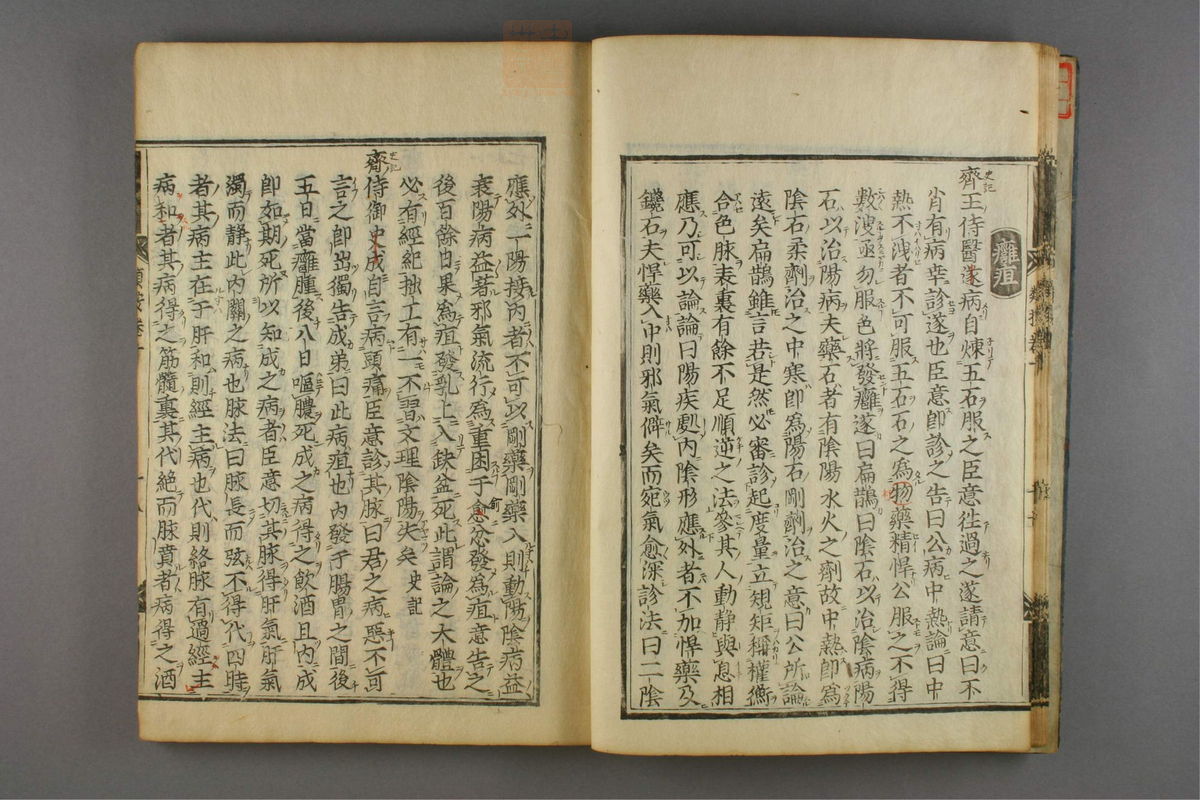 癰疽
齊王侍醫遂病自煉五石服之臣意往過之遂請意曰不
肖有病幸診遂也臣意即診之告曰公病中熱論曰中
熱不溲者不可服五石石之爲物藥精悍公服之不得
數溲亟勿服色將發癰遂曰扁鵲曰陰石以治陰病陽
石以治陽病夫藥石者有陰陽水火之劑故中熱即爲
陰石柔劑治之中寒即爲陽石剛劑治之意曰公所論
遠矣扁鵲雖言若是然必審診起度量立規矩稱權衡
合色脉表裏有餘不足順逆之法參其人動靜與息相
應乃可以論論曰陽疾處內陰形應外者不加悍藥及
鑱石夫悍藥入中則邪氣僻矣而宛氣愈深診法曰二陰
應外一陽接內者不可以剛藥剛藥入則動陽陰病益
衰陽病益著邪氣流行爲重困于愈忿發爲疽意告之
後百餘日果爲疽發乳上入缺盆死此謂論之大體也
必有經紀拙工有一不習文理陰陽失矣 史記
齊侍御史成自言病頭痛臣意診其脉曰君之病惡不可
言之即出獨告成弟曰此病疽也內發于腸胃之間後
五日當癰腫後八日嘔膿死成之病得之飲酒且內成
即如期死所以知成之病者臣意切其脉得肝氣肝氣
濁而靜此內關之病也脉法曰脉長而弦不得代四時
者其病主在于肝和則經主病也代則絡脉有過經主
病和者其病得之筋髓裏其代絶而脉賁者病得之酒